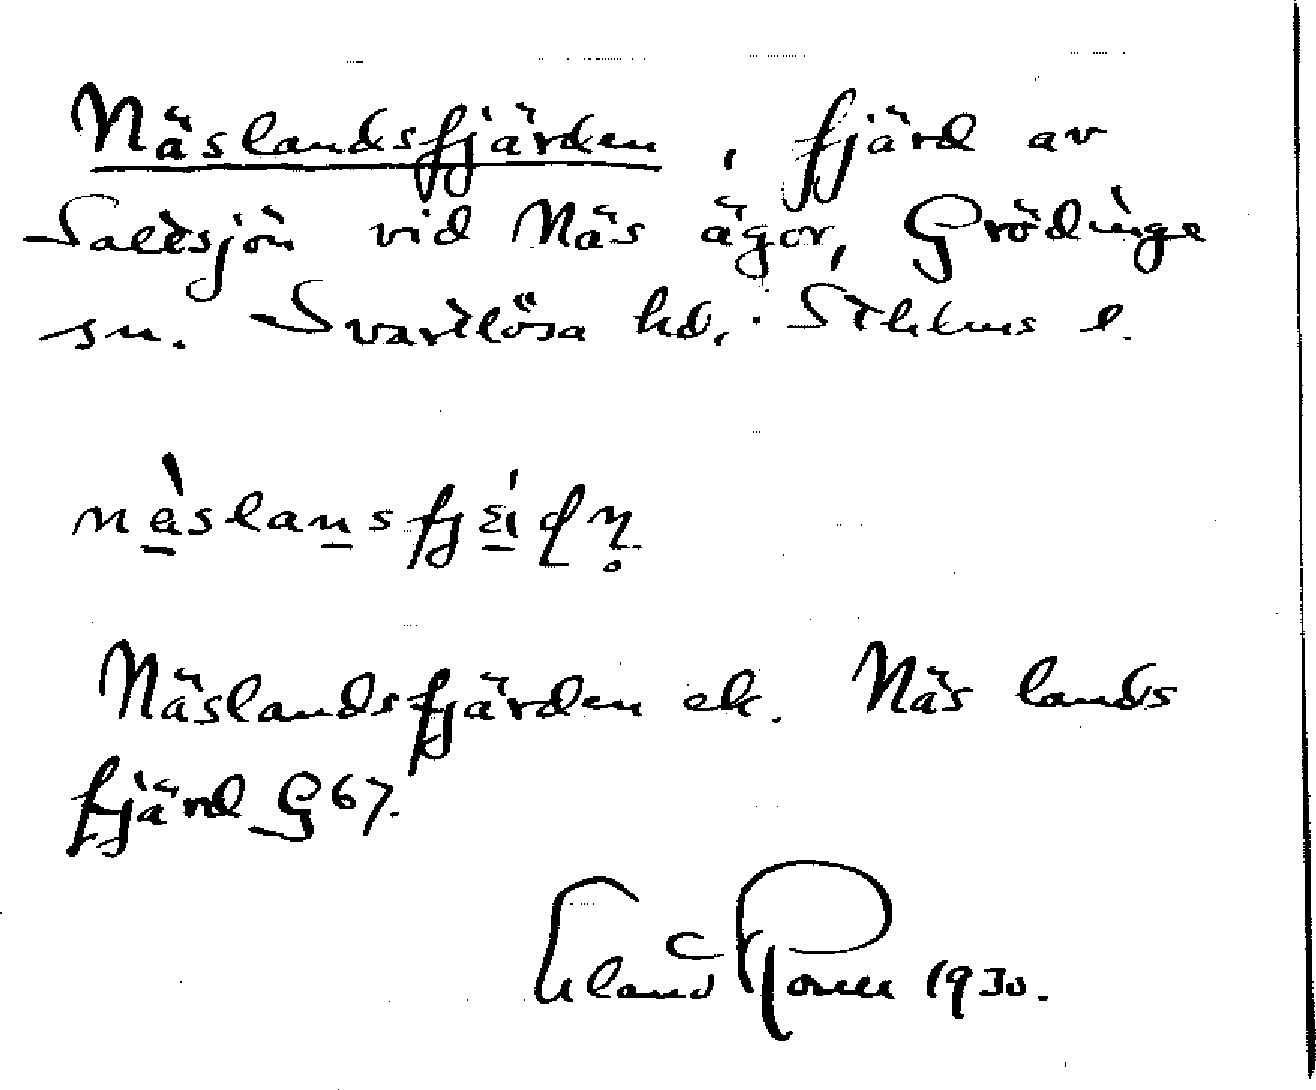 Näslandsfjärden, fjärd av
Saltsjön vid Näs ägor, Grödinge
sn. Svartlösa hd, Sthlms l.
Näslandsfjärden ek. Näs lands
fjärd G67.
Erland Rosell 1930.